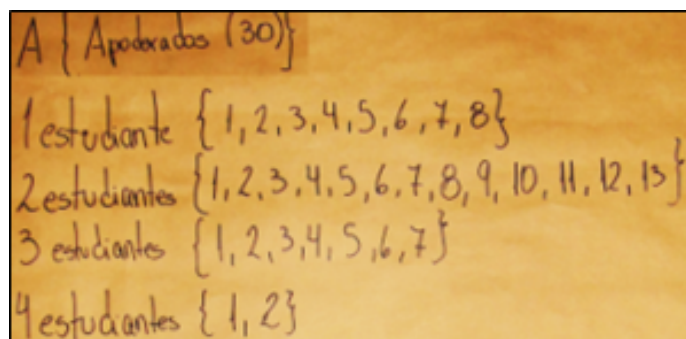 A { Apoderados (30)}
1 estudiante { 1, 2, 3, 4, 5, 6, 7, 8}
2 estudiantes {1, 2, 3, 4, 5, 6, 7, 8, 9, 10, 11, 12, 13}
3 estudiantes {1, 2, 3, 4, 5, 6, 7}
4 estudiantes { 1, 2}